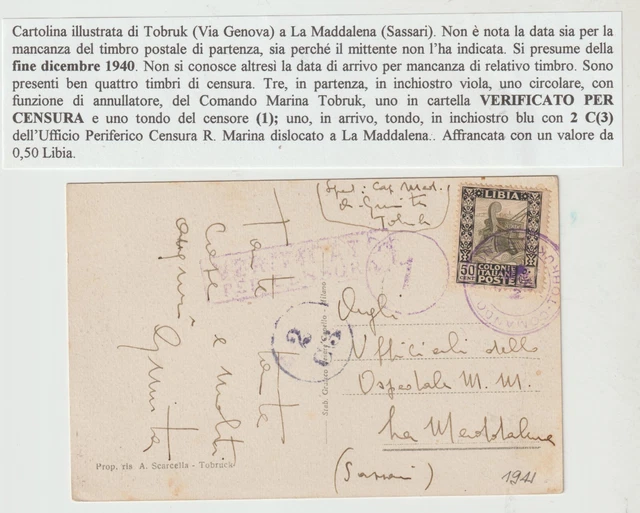 Cartolina illustrata di Tobruk (Via Genova) a La Maddalena (Sassari). Non è nota la data sia per la
mancanza del timbro postale di partenza, sia perché il mittente non l'ha indicata. Si presume della
fine dicembre 1940. Non si conosce altresì la data di arrivo per mancanza di relativo timbro. Sono
presenti ben quattro timbri di censura. Tre, in partenza, in inchiostro viola, uno circolare, con
funzione di annullatore, del Comando Marina Tobruk, uno in cartella VERIFICATO PER
CENSURA e uno tondo del censore (1); uno, in arrivo, tondo, in inchiostro blu con 2 C(3)
dell'Ufficio Periferico Censura R. Marina dislocato a La Maddalena.. Affrancata con un valore da
0,50 Libia.
(Sped: Cap. Med.
Tobruk
LIBIA
50
CENT
COLONIE
ITALIANE
POSTE
VERIFICATO
PER CENSURA
2
C3
Tante tante
cose e molti
auguri
Agli
Ufficiali dello
Ospedale M. M.
La Maddalena
(Sassari)
1941
Prop. ris A. Scarcella - Tobruck